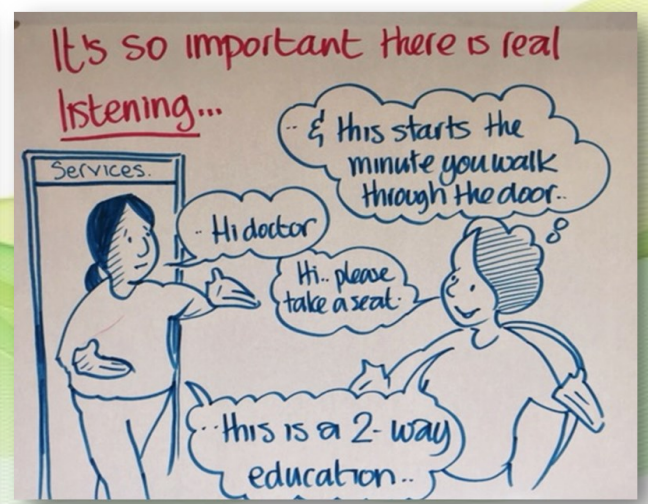 It's so important there is real
listening...
.. & this starts the
minute you walk
through the door..
Services.
.. Hi doctor
Hi.. please
take a seat.
..this is a 2-way
education..